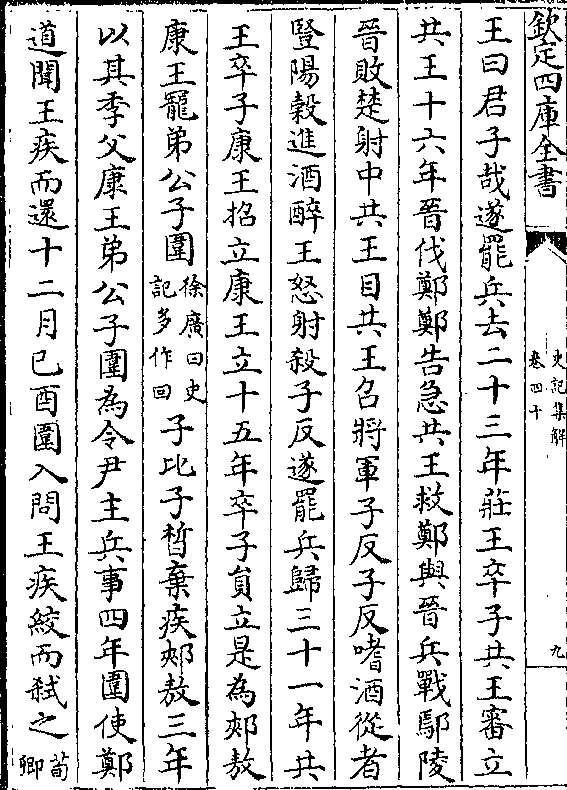 欽定四庫全書
史記集解
卷四十
九
王曰君子哉遂罷兵去二十三年莊王卒子共王審立
共王十六年晉伐鄭鄭告急共王救鄭與晉兵戰鄢陵
晉敗楚射中共王目共王召將軍子反子反嗜酒從者
豎陽榖進酒醉王怒射殺子反遂罷兵歸三十一年共
王卒子康王招立康王立十五年卒子員立是為郟敖
康王寵弟公子圍徐廣曰史記多作回子比子晳棄疾郟敖三年
以其季父康王弟公子圍為令尹主兵事四年圍使鄭
道聞王疾而還十二月已酉圍入問王疾絞而弑之荀卿